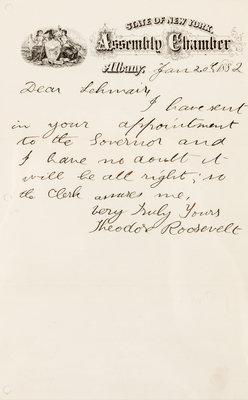 STATE OF NEW YORK,
Assembly Chamber
Albany, Jan 20 1882
Dear Lehmair,
I have sent
in your appointment
to the Governor and
I have no doubt it
will be all right; so
the Clerk assures me,
Very Truly Yours
Theodore Roosevelt